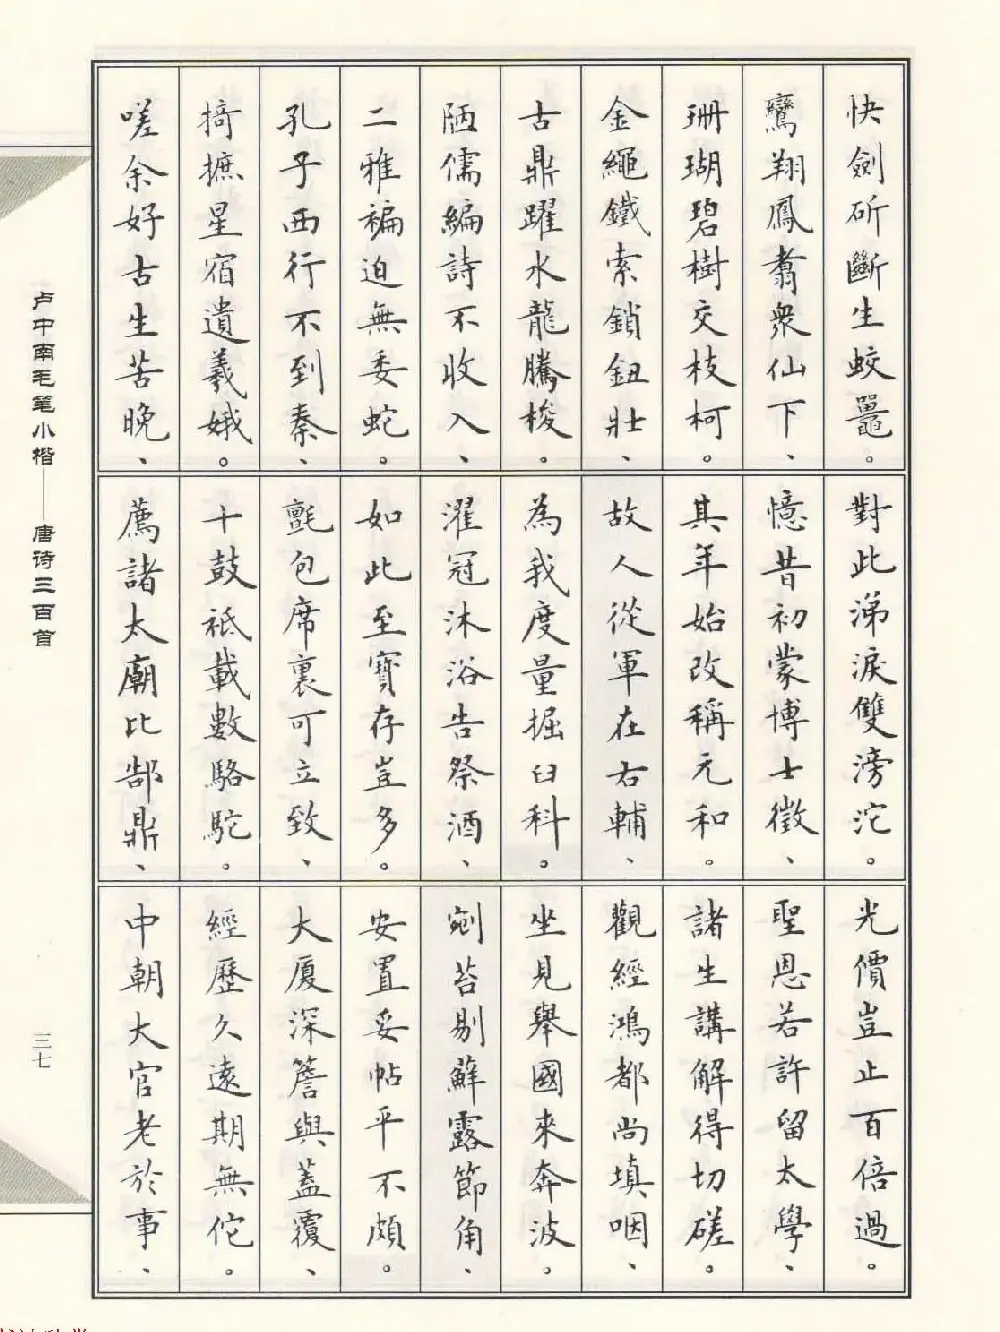 快劍斫斷生蛟鼉。
鸞翔鳳翥衆仙下、
珊瑚碧樹交枝柯。
金繩鐵索鎖鈕壯、
古鼎躍水龍騰梭。
陋儒編詩不收入、
二雅褊迫無委蛇。
孔子西行不到秦、
掎摭星宿遺羲娥。
嗟余好古生苦晚、
對此涕淚雙滂沱。
憶昔初蒙博士徵、
其年始改稱元和。
故人從軍在右輔、
為我度量掘臼科。
濯冠沐浴告祭酒、
如此至寶存豈多。
氈包席裹可立致、
十鼓祗載數駱駝。
薦諸太廟比郜鼎、
光價豈止百倍過。
聖恩若許留太學、
諸生講解得切磋。
觀經鴻都尚填咽、
坐見舉國來奔波。
剜苔剔蘚露節角、
安置妥帖平不頗。
大厦深簷與蓋覆、
經歷久遠期無佗。
中朝大官老於事、
卢中南毛笔小楷——唐诗三百首
三七